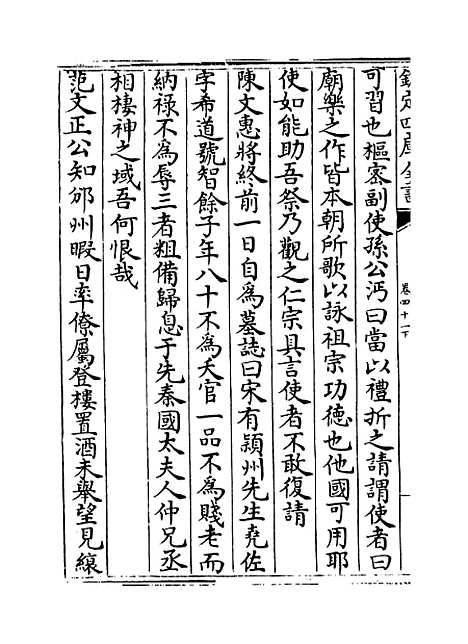 欽定四庫全書
卷四十一下
可習也樞密副使孫公沔曰當以禮折之請謂使者曰
廟樂之作皆本朝所歌以詠祖宗功德也他國可用耶
使如能助吾祭乃觀之仁宗具言使者不敢復請
陳文惠將終前一日自為墓誌曰宋有潁州先生堯佐
字希道號智餘子年八十不為夭官一品不為賤老而
納祿不為辱三者粗備歸息于先秦國太夫人仲兄丞
相棲神之域吾何恨哉
范文正公知邠州暇日率僚屬登樓置酒未舉望見縗